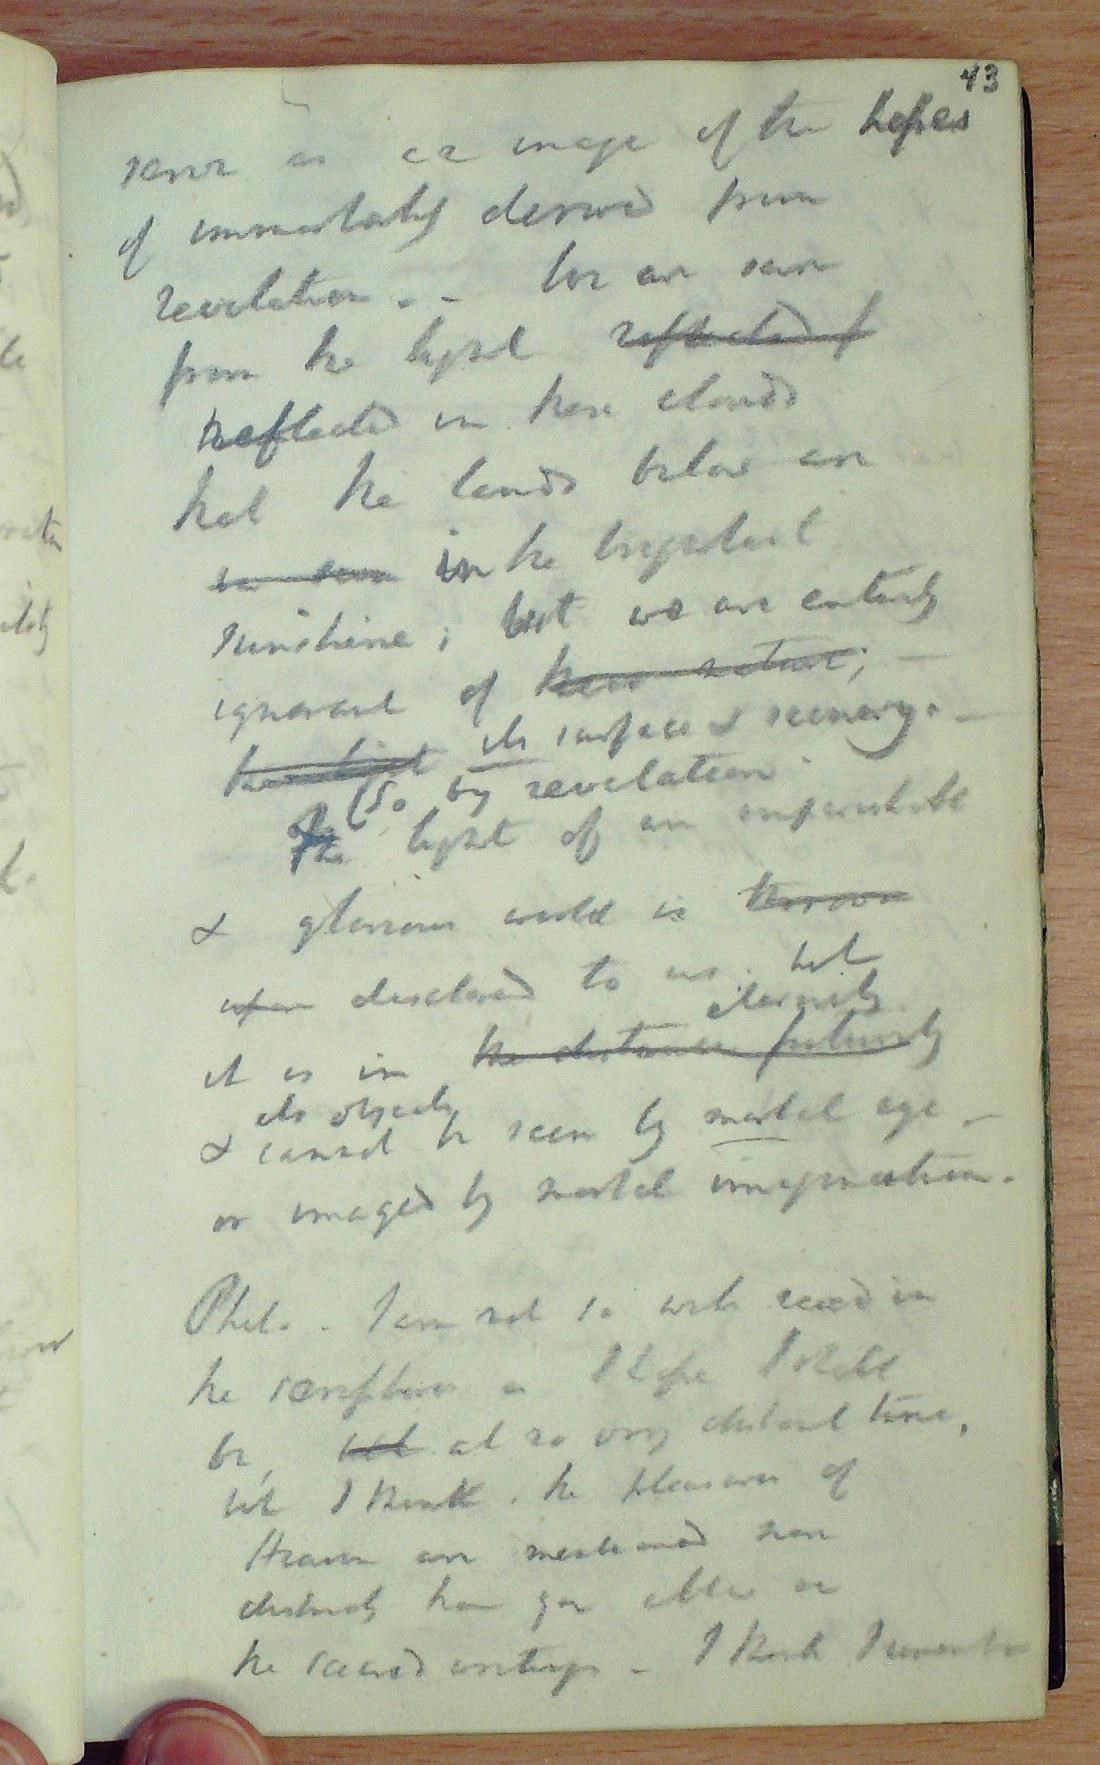 43
serve as an image of the hopes
of immortality derived from
revelation. - for we are sure
from the light reflected f
Reflected in these clouds
that the lands below are
in the brightest
sunshine; but we are entirely
ignorant of their nature; -
its surface & scenery. -
(So by revelation
The light of an imperishable
& glorious world is thrown
upon disclosed to us. but
eternity
it is in the distance futurity
its objects
& cannot be seen by mortal eye -
or imaged by mortal imagination.
Phil. - I am not so well read in
the scriptures as I hope I shall
be, at no very distant time,
but I think the pleasures of
Heaven are mentioned more
distinctly than you allow in
the sacred writings - I think I remember